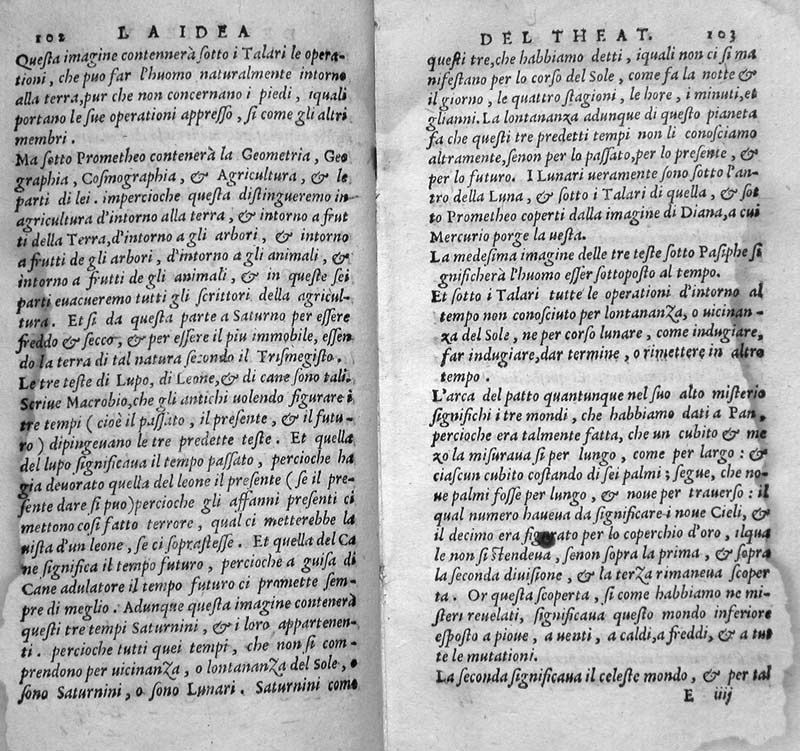 102 LA IDEA
Questa imagine contennerà sotto i Talari le opera-
tioni, che puo far l'huomo naturalmente intorno
alla terra, pur che non concernano i piedi, iquali
portano le sue operationi appresso, si come gli altri
membri.
Ma sotto Prometheo contenerà la Geometria, Geo
graphia, Cosmographia, & Agricultura, & le
parti di lei. impercioche questa distingueremo in
agricultura d'intorno alla terra, & intorno a frut
ti della Terra, d'intorno a gli arbori, & intorno
a frutti de gli arbori, d'intorno a gli animali, &
intorno a frutti de gli animali, & in queste sei
parti euacueremo tutti gli scrittori della agricul-
tura. Et si da questa parte a Saturno per essere
freddo & secco, & per essere il piu immobile, essen
do la terra di tal natura secondo il Trismegisto.
Le tre teste di Lupo, di Leone, & di cane sono tali.
Scriue Macrobio, che gli antichi uolendo figurare i
tre tempi (cioè il passato, il presente, & il futu-
ro) dipingeuano le tre predette teste. Et quella
del lupo significaua il tempo passato, percioche ha
gia deuorato quella del leone il presente (se il pre-
sente dare si puo) percioche gli affanni presenti ci
mettono cosi fatto terrore, qual ci metterebbe la
uista d'un leone, se ci soprastesse. Et quella del Ca
ne significa il tempo futuro, percioche a guisa di
Cane adulatore il tempo futuro ci promette sem-
pre di meglio. Adunque questa imagine contenerà
questi tre tempi Saturnini, & i loro appartenen-
ti. percioche tutti quei tempi, che non si com-
prendono per uicinanza, o lontananza del Sole, o
sono Saturnini, o sono Lunari. Saturnini come
DEL THEAT. 103
questi tre, che habbiamo detti, iquali non ci si ma
nifestano per lo corso del Sole, come fa la notte &
il giorno, le quattro stagioni, le hore, i minuti, et
glianni. La lontananza adunque di questo pianeta
fa che questi tre predetti tempi non li conosciamo
altramente, senon per lo passato, per lo presente, &
per lo futuro. I Lunari ueramente sono sotto l'an-
tro della Luna, & sotto i Talari di quella, & sot
to Prometheo coperti dalla imagine di Diana, a cui
Mercurio porge la uesta.
La medesima imagine delle tre teste sotto Pasiphe si
gnificherà l'huomo esser sottoposto al tempo.
Et sotto i Talari tutte le operationi d'intorno al
tempo non conosciuto per lontananza, o uicinan-
za del Sole, ne per corso lunare, come indugiare,
far indugiare, dar termine, o rimettere in altro
tempo.
L'arca del patto quantunque nel suo alto misterio
significhi i tre mondi, che habbiamo dati a Pan,
percioche era talmente fatta, che un cubito & me
zo la misuraua si per lungo, come per largo: &
ciascun cubito costando di sei palmi; segue, che no-
ue palmi fosse per lungo, & noue per trauerso: il
qual numero haueua da significare i noue Cieli, &
il decimo era figurato per lo coperchio d'oro, ilqua
le non si stendeua, senon sopra la prima, & sopra
la seconda diuisione, & la terza rimaneua scoper
ta. Or questa scoperta, si come habbiamo ne mi-
steri reuelati, significaua questo mondo inferiore
esposto a pioue, a uenti, a caldi, a freddi, & a tut
te le mutationi.
La seconda significaua il celeste mondo, & per tal
E iiij